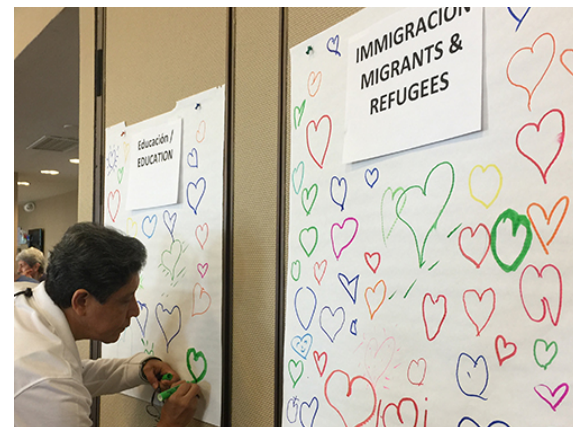 Educación /
EDUCATION
IMMIGRACIÓN
MIGRANTS &
REFUGEES